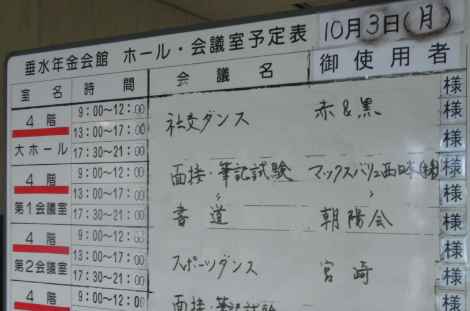 垂水年金会館 ホール・会議室予定表 10月3日(月)
室名 時間 会議名 御使用者
4階 9:00〜12:00 様
大ホール 13:00〜17:00 社交ダンス 赤&黒 様
17:30〜21:00 様
4階 9:00〜12:00 面接・筆記試験 マックスバリュ西日本(株) 様
第1会議室 13:00〜17:00 〃 〃 様
17:30〜21:00 書道 朝陽会 様
4階 9:00〜12:00 様
第2会議室 13:00〜17:00 スポーツダンス 宮崎 様
17:30〜21:00 様
4階 9:00〜12:00 面接・筆記試験 様